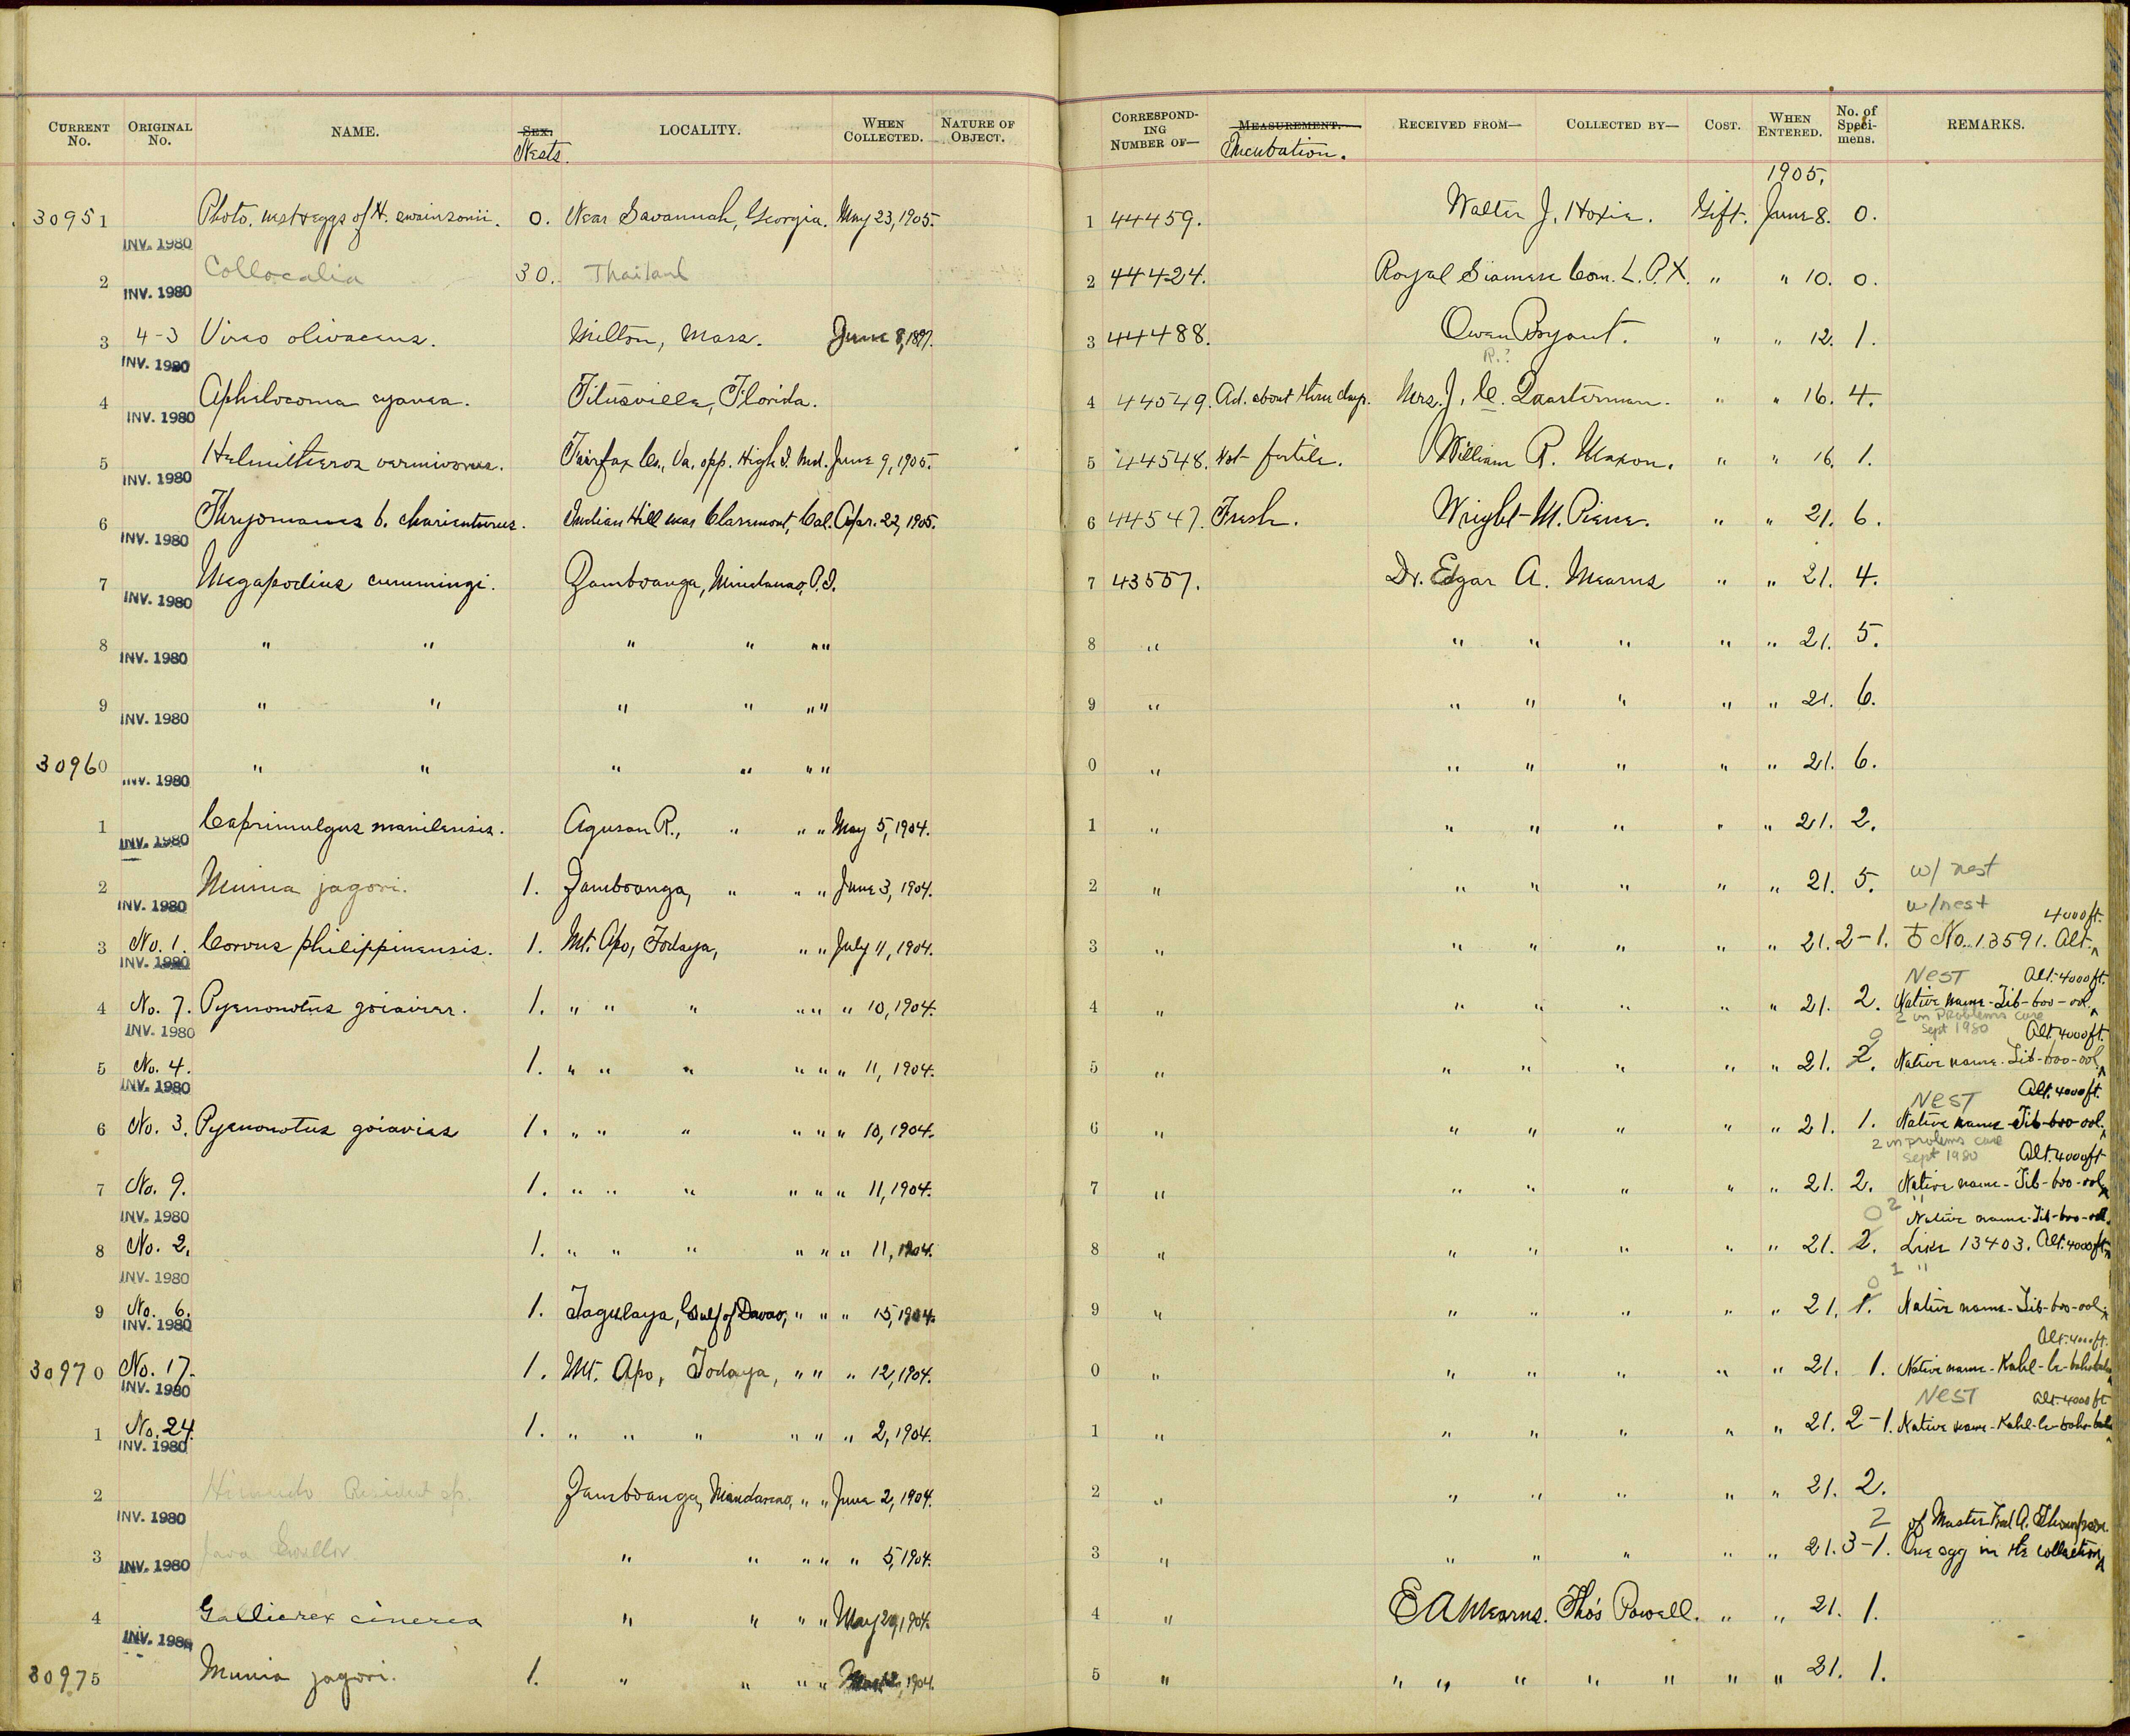 CURRENT No. ORIGINAL No. NAME. Sex. Nests. LOCALITY. WHEN COLLECTED. NATURE OF OBJECT. CORRESPONDING NUMBER OF— MEASUREMENT. Incubation. RECEIVED FROM— COLLECTED BY— COST. WHEN ENTERED. No. of Specimens. REMARKS.
1905.
30951 Photo. nest & eggs of H. swainsonii. 0. Near Savannah, Georgia. May 23, 1905. 1 44459. Walter J. Hoxie. Gift. June 8. 0.
INV. 1980
2 Collocalia 30. Thailand 2 44424. Royal Siamese Com. L. P. X. " " 10. 0.
INV. 1980
3 4-3 Vireo olivaceus. Milton, Mass. June 8, 1897. 3 44488. Owen Bryant. " " 12. 1.
INV. 1980
R.?
4 Aphelocoma cyanea. Titusville, Florida. 4 44549. Ad. about three days. Mrs. J. C. Quarterman. " " 16. 4.
INV. 1980
5 Helmitheros vermivorus. Fairfax Co., Va. opp. High I. Md. June 9, 1905. 5 44548. Not fertile. William R. Maxon. " " 16. 1.
INV. 1980
6 Thryomanes b. charienturus. Indian Hill near Claremont, Cal. Apr. 22, 1905. 6 44547. Fresh. Wright M. Pierce. " " 21. 6.
INV. 1980
7 Megapodius cummingi. Zamboanga, Mindanao, P.I. 7 43557. Dr. Edgar A. Mearns " " 21. 4.
INV. 1980
8 " " " " " " 8 " " " " " " 21. 5.
INV. 1980
9 " " " " " " 9 " " " " " " 21. 6.
INV. 1980
30960 " " " " " " 0 " " " " " " 21. 6.
INV. 1980
1 Caprimulgus manilensis. Agusan R., " " " May 5, 1904. 1 " " " " " " 21. 2.
INV. 1980
2 Munia jagori. 1. Zamboanga, " " " June 3, 1904. 2 " " " " " " 21. 5. w/ nest
INV. 1980
w/nest 4000 ft.
3 No. 1. Corvus philippinensis. 1. Mt. Apo, Todaya, " " July 11, 1904. 3 " " " " " " 21. 2-1. ♁ No. 13591. Alt. ^
INV. 1980
NEST Alt. 4000 ft.
4 No. 7. Pycnonotus goiavier. 1. " " " " " " 10, 1904. 4 " " " " " " 21. 2. Native name - Tib-boo-ool. ^
INV. 1980
2 in Problems case
Sept 1980 Alt. 4000 ft.
5 No. 4. 1. " " " " " " 11, 1904. 5 " " " " " " 21. 2. 0 Native name - Tib-boo-ool. ^
INV. 1980
NEST Alt. 4000 ft.
6 No. 3. Pycnonotus goiavier 1. " " " " " " 10, 1904. 6 " " " " " " 21. 1. Native name - Tib-boo-ool. ^
2 in problems case
Sept 1980 Alt. 4000 ft
7 No. 9. 1. " " " " " " 11, 1904. 7 " " " " " " 21. 2. Native name - Tib-boo-ool. ^
INV. 1980
0 2 "
Native name - Tib-boo-ool.
8 No. 2. 1. " " " " " " 11, 1904. 8 " " " " " " 21. 2. Like 13403. Alt. 4000 ft. ^
INV. 1980
0 1 "
9 No. 6. 1. Tagulaya, Gulf of Davao, " " " 15, 1904. 9 " " " " " " 21. 1. Native name - Tib-boo-ool. ^
INV. 1980
Alt. 4000 ft.
30970 No. 17. 1. Mt. Apo, Todaya, " " " 12, 1904. 0 " " " " " " 21. 1. Native name - Kahl-le-
INV. 1980
NEST Alt. 4000 ft
1 No. 24. 1. " " " " " " 2, 1904. 1 " " " " " " 21. 2-1. Native name - Kahl-le-
INV. 1980
2 Resident sp. Zamboanga, Mindanao, " " June 2, 1904. 2 " " " " " " 21. 2.
INV. 1980
2 of Master Fred A. Thompson.
3 " " " " " 5, 1904. 3 " " " " " " 21. 3-1. One egg in the collection ^
INV. 1980
4 Gallicrex cinerea " " " " May 29, 1904. 4 " E A Mearns. Tho's Powell. " " 21. 1.
INV. 1980
30975 Munia jagori. 1. " " " " 1904. 5 " " " " " " " " 21. 1.